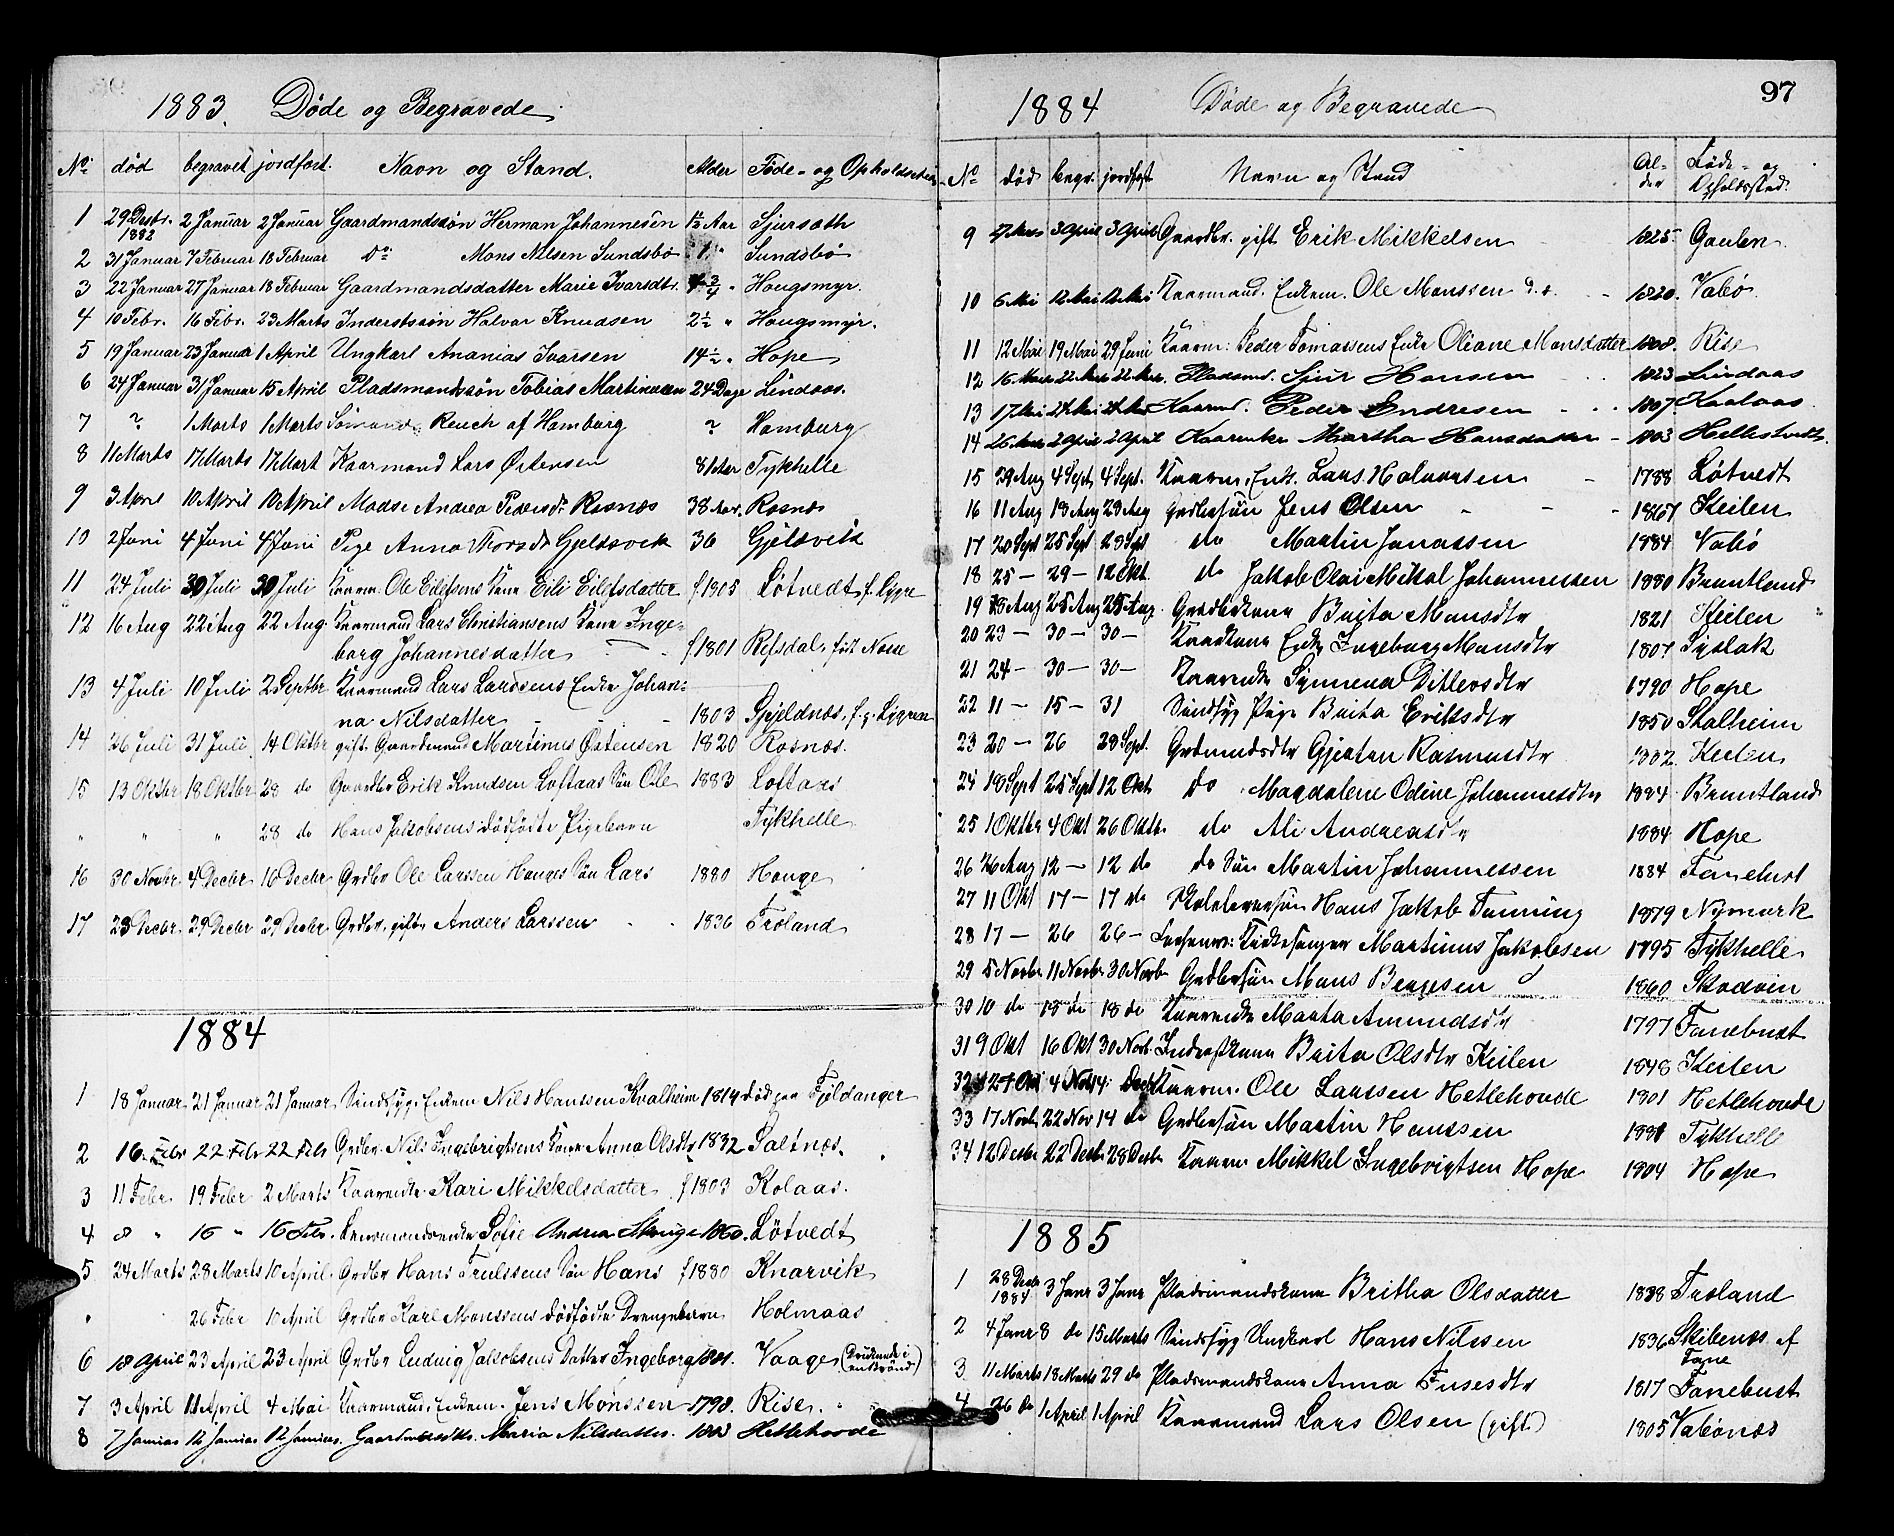 1883. Døde og Begravede
No. død begravet jordfæst. Navn og Stand. Alder Føde- og Opholdssted
1 29 Decbr. 1882 2 Januar 2 Januar Gaardmandssøn Herman Johannesen 1½ Aar Sjursæth
2 31 Januar 7 Februar 18 Februar Do. Mons Nilsen Sundsbø 1 " Sundsbø
3 22 Januar 27 Januar 18 Februar Gaardmandsdatter Marie Ivarsdtr. ¾ " Hougsmyr.
4 10 Febr. 16 Febr. 23 Marts Inderstsøn Halvar Knudsen 2½ " Hougsmyr.
5 19 Januar 23 Januar 1 April Ungkarl Ananias Ivarsen 14½ " Hope
6 24 Januar 31 Januar 15 April Pladsmandssøn Tobias Martinussen 24 Dage Lindaas.
7 ? 1 Marts 1 Marts Sømand Reuch af Hamburg ? Hamburg
8 11 Marts 17 Marts 17 Mart Kaarmand Lars Østensen 81 Aar Tykhelle
9 3 April 10 April 10 April Madse Andrea Pedersdr Rosnæs 38 Aar. Rosnæs
10 2 Juni 4 Juni 4 Juni Pige Anna Thorsdr Gjeldsvik 36 Gjelsvik
11 24 Juli 30 Juli 30 Juli Kaarm. Ole Eilefsens Kone Eili Eilefsdatter f 1805 Løtvedt, f. Lygre
12 16 Aug 22 Aug 22 Aug Kaarmand Lars Christiansens Kone Inge-
borg Johannesdatter f 1801 Refsdal, föt Nose
13 4 Juli 10 Juli 2 Septbr Kaarmand Lars Larssens Enke Johan-
na Nilsdatter 1803 Spjeldnæs, f. p. Lygren
14 26 Juli 31 Juli 14 Oktbr gift Gaardmand Martinus Østensen 1820 Rosnæs.
15 13 Oktbr 18 Oktbr 28 do Gaardbr Erik Knudsen Loftaas Søn Ole 1883 Loftaas
" " " 28 do Hans Jakobsens dødfødte Pigebarn Tykhelle
16 30 Novbr. 4 Decbr 16 Decbr Grdbr Ole Larssen Houges Søn Lars 1880 Houge
17 23 Decbr. 29 Decbr 29 Decbr. Grdbr, gift Anders Larssen 1836 Træland
1884
1 18 Januar 21 Januar 21 Januar Sindssyg Enkem Nils Hanssen Kvalheim 1814 død paa Fjeldanger
2 16. Febr 22 Febr 22 Febr Grdbr. Nils Ingebrigtsens Kone Anna Olsdtr 1832 Saltnæs.
3 11 Febr. 19 Febr 2 Marts Kaarenke Kari Mikkelsdatter f 1803 Kolaas.
4 8 " 16 " 16 Febr. Lensmandsenke Sofie Andrea Stenge 1860. Løtvedt
5 24 Marts 28 Marts 10 April Grdbr Hans Trulssens Søn Hans f 1880 Knarvik
" 26 Febr 10 April Grdbr Karl Monssens dødfødte Drengebarn Holmaas
6 18 April 23 April 23 April Grdbr Ludvig Jakobsens Datter Ingeborg 1881. Vaage (Druknede i en Brønd)
7 3 April 11 April 4 Mai Kaarmand, Enkem. Jens Monssen 1798. Rise.
8 7 Januar 12 Januar 12 Januar Gaardmandsdtr. Maria Nilsdatter. 1883 Hetlehovde
97
1884 Døde og Begravede
No død begr. jordfæst Navn og Stand Al-der Føde- og Opholdssted.
9 27 Mars 3 April 3 April Gaardbr. gift Erik Mikkelsen 1825. Gaulen
10 6 Mai 12 Mai 12 Mai Kaarmand. Enkem. Ole Monssen 1820. Vabø
11 12 Mai 19 Mai 29 Juni Kaarm: Peder Tomassens Enke Oliane Monsdatter 1808. Rise
12 16 Mars 22 Mars 22 Mars. Pladsmd. Sjur Hansen 1823 Lindaas
13 17 Mai 24 Mai 24 Mai Kaarmd. Peder Endresen 1807. Kaalaas
14 26 Mars 2 April 2 April Kaarenke Martha Hansdatter 1803 Hellestvedt.
15 29 Aug 4 Sept 4 Sept. Kaarm. Enk. Lars Halvorsen 1788 Løtvedt
16 11 Aug 19 Aug 29 Aug Grdbrsøn Jens Olsen 1867 Keilen
17 20 Sept 25 Sept 28 Sept do Martin Jonassen 1884 Vabø
18 25 - 29 - 12 Okt. do Jakob Olai Mikal Johannessen 1880 Bruntland
19 18 Aug 25 Aug 25 Aug. Grdbrkone Brita Monsdtr 1821 Keilen
20 23 - 30 - 30 - Kaarkone Enke Ingeborg Monsdtr 1807 Syslak
21 24 - 30 - 30 - Kaarenke Synneva Ditlevsdtr 1790 Hope
22 11 - 15 - 31 Sindssyg Pige Brita Eriksdtr 1850 Stalheim
23 20 - 26 28 Sept. Grdmandsdtr Gjertrn Rasmusdtr 1882 Keilen
24 18 Sept 25 Sept 12 Okt. do Magdalene Odine Johannesdtr 1884 Bruntland
25 1 Oktbr 4 Okt 26 Oktbr. do Ali Andreasdtr 1884 Hope
26 26 Aug 12 - 12 do do Søn Martin Johannessen 1884 Fanebust
27 11 Okt 17 - 17 do Skolelærersøn Hans Jakob Fanning 1879 Nymark
28 17 - 26 26 - Kirkesanger Martinus Jakobsen 1795 Tykhelle
29 5 Novbr 11 Novbr 30 Novbr Grdbrsøn Mons Bergesen 1860 Skodvin
30 10 do 18 do 18 do Kaarenke Marta Amundsdtr 1797 Fanebust
31 9 Okt 16 Okt 30 Novb. Inderstkone Brita Olsdtr Keilen 1848 Keilen
32 27 Okt 4 Nov 14 Decb Kaarm. Ole Larssen Hetlehovde 1801 Hetlehovde
33 17 Novb. 22 Nov 14 do Grdbrsøn Martin Hanssen 1881 Tykhelle
34 12 Decbr 22 Decb. 28 Decbr Kaarm Mikkel Ingebrigtsen Hope 1804 Hope
1885
1 28 Decbr 1884 3 Janr 3 Janr Pladsmandskone Britha Olsdatter 1838 Træland
2 4 Janr 8 do 15 Marts Sindssyg Ungkarl Hans Nilssen 1836 Skibenæs af Fane
3 11 Marts 18 Marts 29 do Pladsmandskone Anna Fusesdtr 1817 Fanebust
4 26 do 1 April 1 April Kaarmand Lars Olsen (gift) 1805 Vabønæs